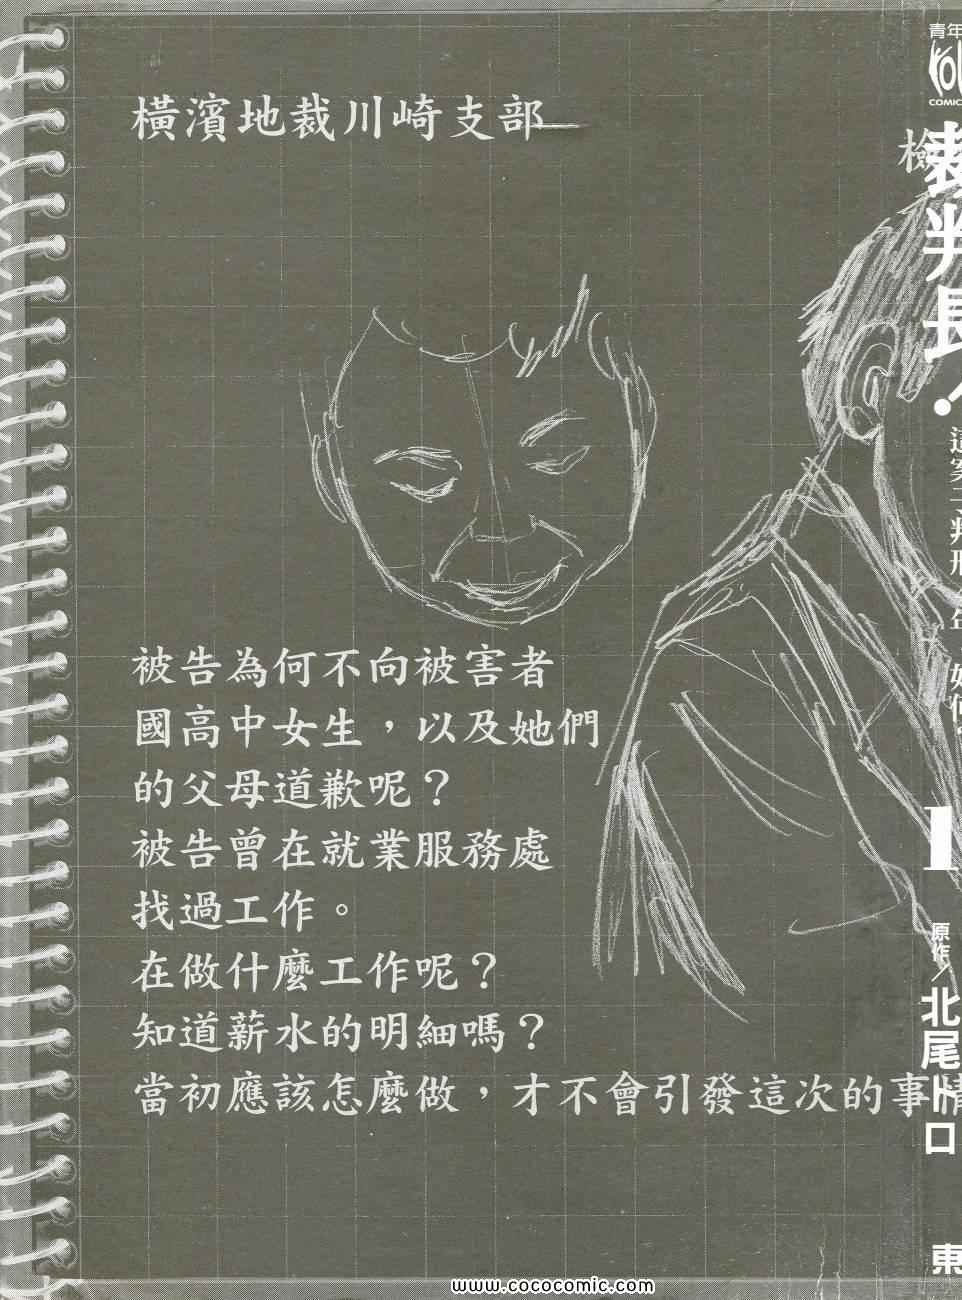 橫濱地裁川崎支部
檢
被告為何不向被害者
國高中女生，以及她們
的父母道歉呢？
被告曾在就業服務處
找過工作。
在做什麼工作呢？
知道薪水的明細嗎？
當初應該怎麼做，才不會引發這次的事情
青年
COMIC
裁判長！
這案子判刑
年
如何？
1
原作／北尾トロ
東
www.cococomic.com